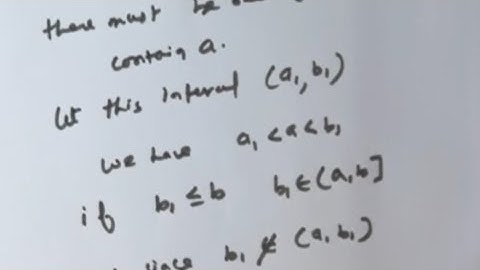 there must be
contain a.
let this interval (a₁, b₁)
we have a₁ < a < b₁
if b₁ ≤ b b₁ ∈ (a, b]
since b₁ ∉ (a, b₁)